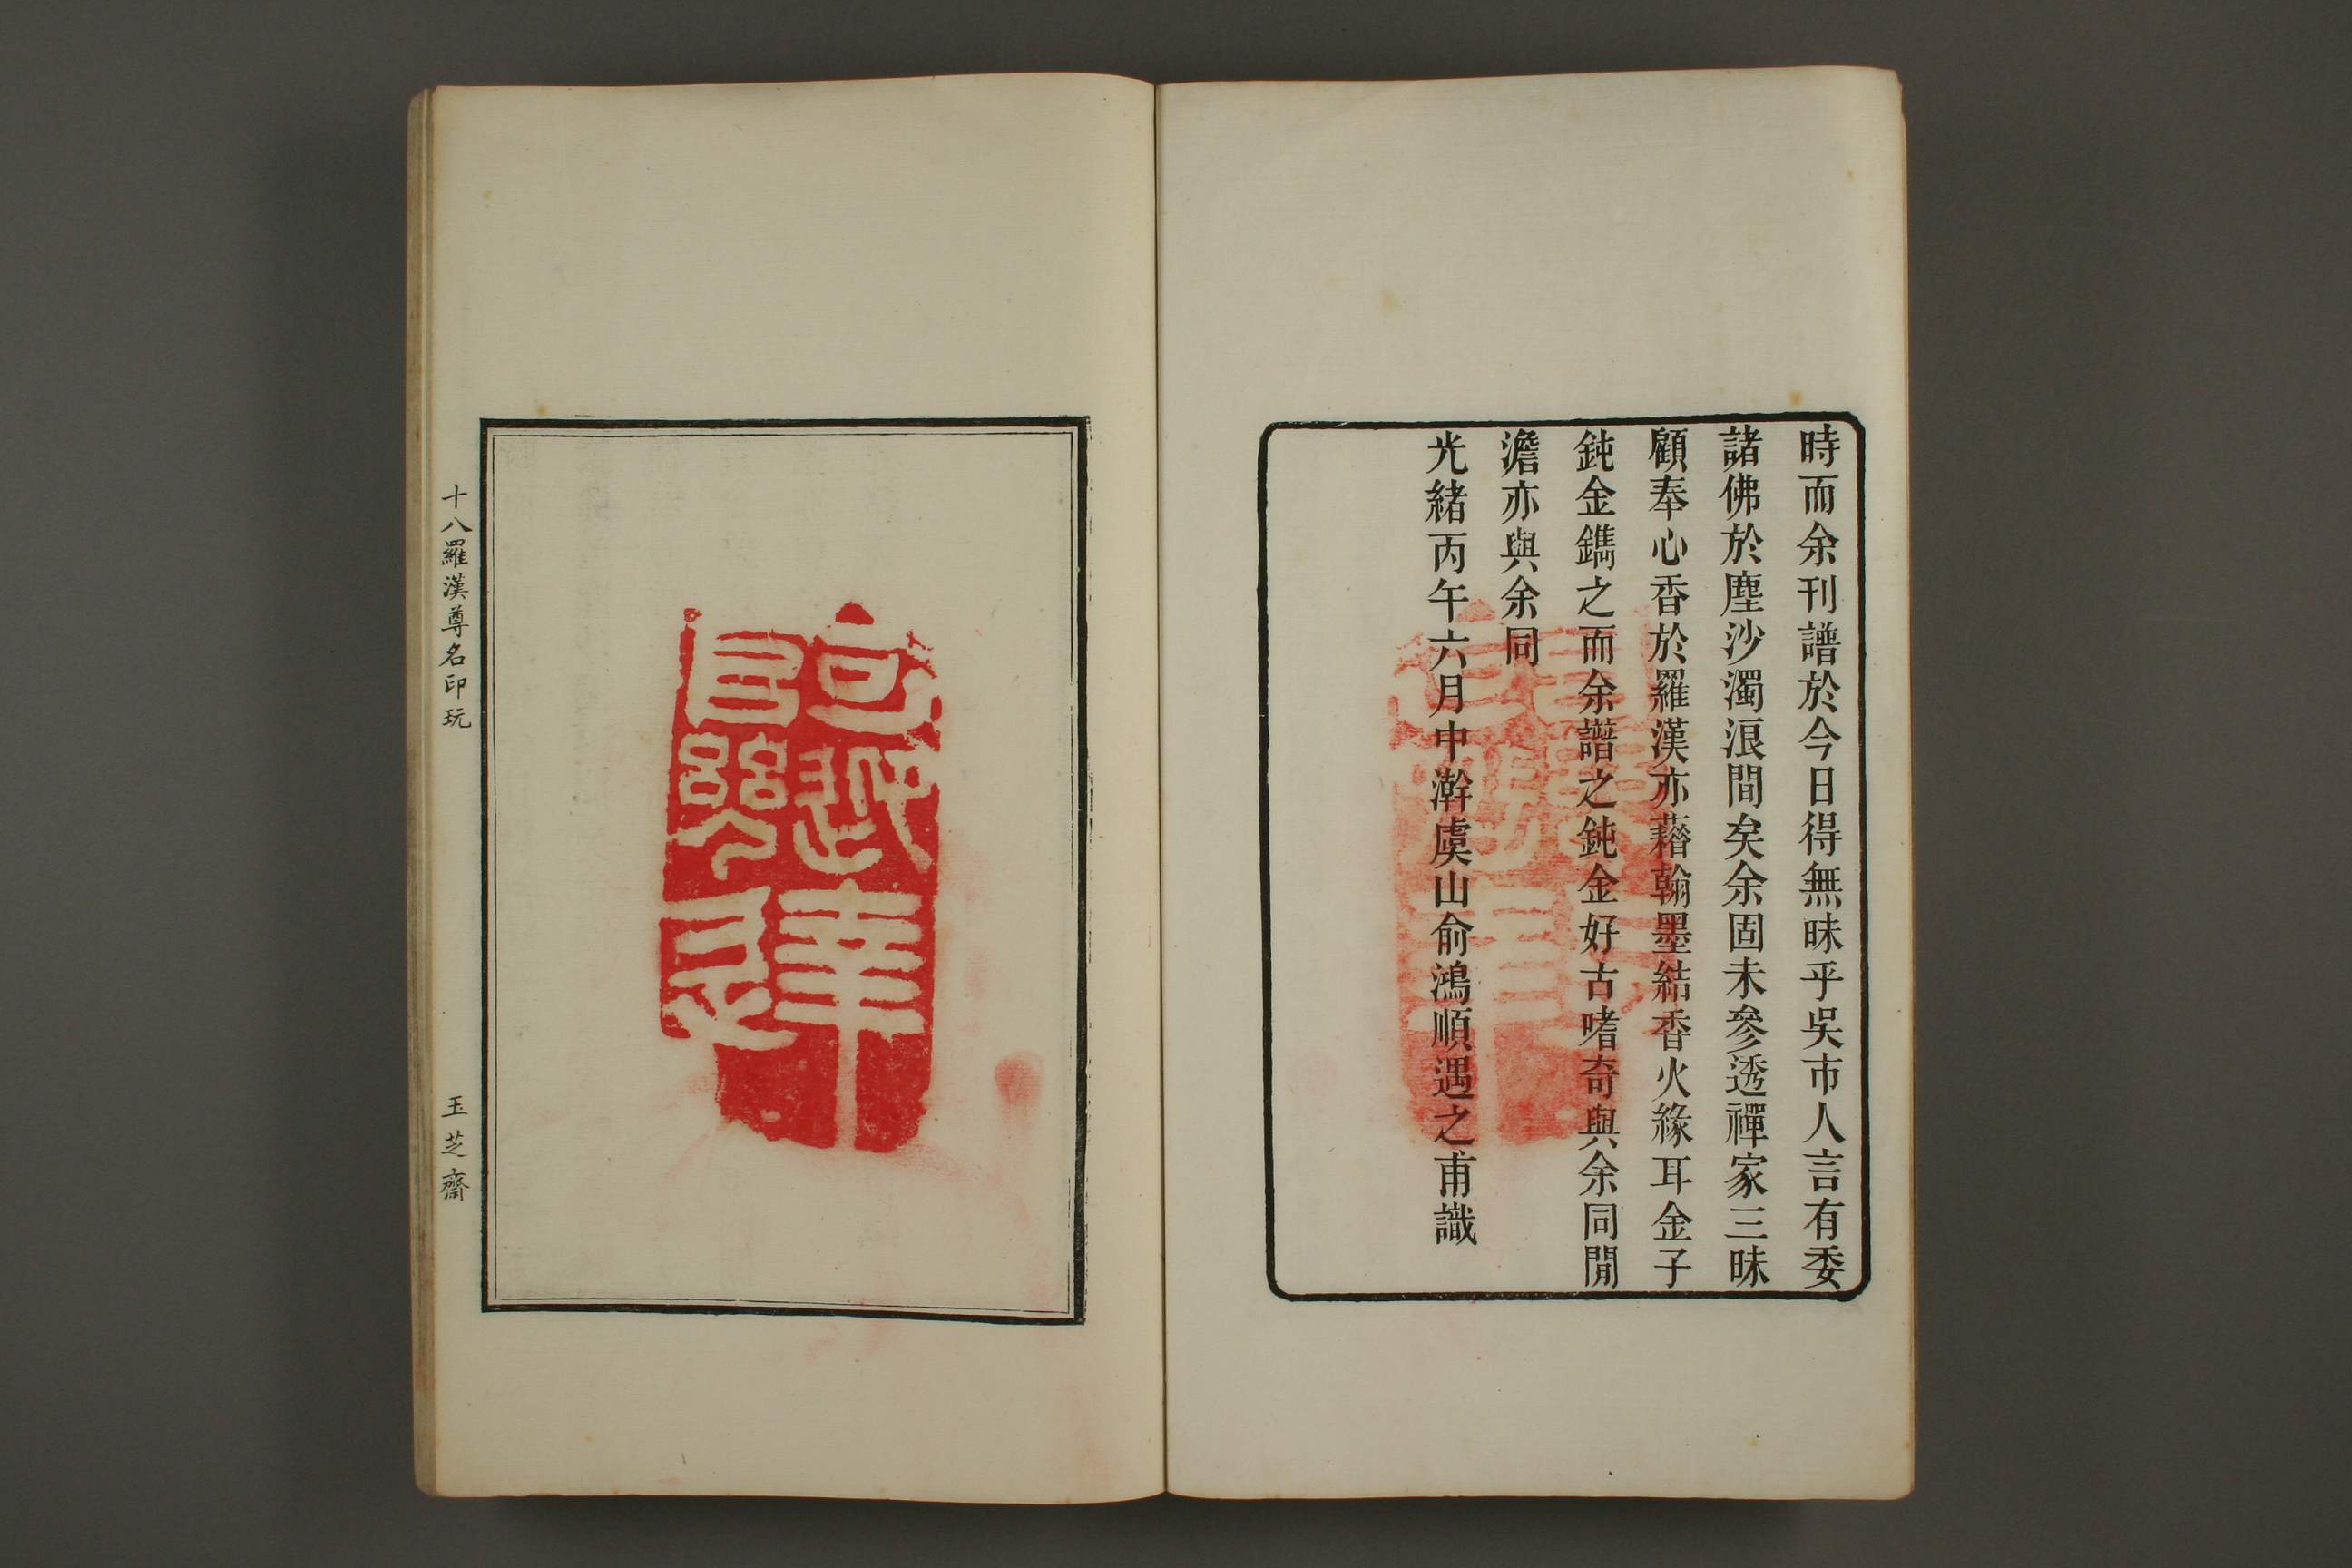 時而余刊譜於今日得無昧乎吳市人言有委
諸佛於塵沙濁浪間矣余固未參透禪家三昧
顧奉心香於羅漢亦藉翰墨結香火緣耳金子
鈍金鐫之而余譜之鈍金好古嗜奇與余同閒
澹亦與余同
光緒丙午六月中澣虞山俞鴻順遇之甫識
十八羅漢尊名印玩
玉芝齋